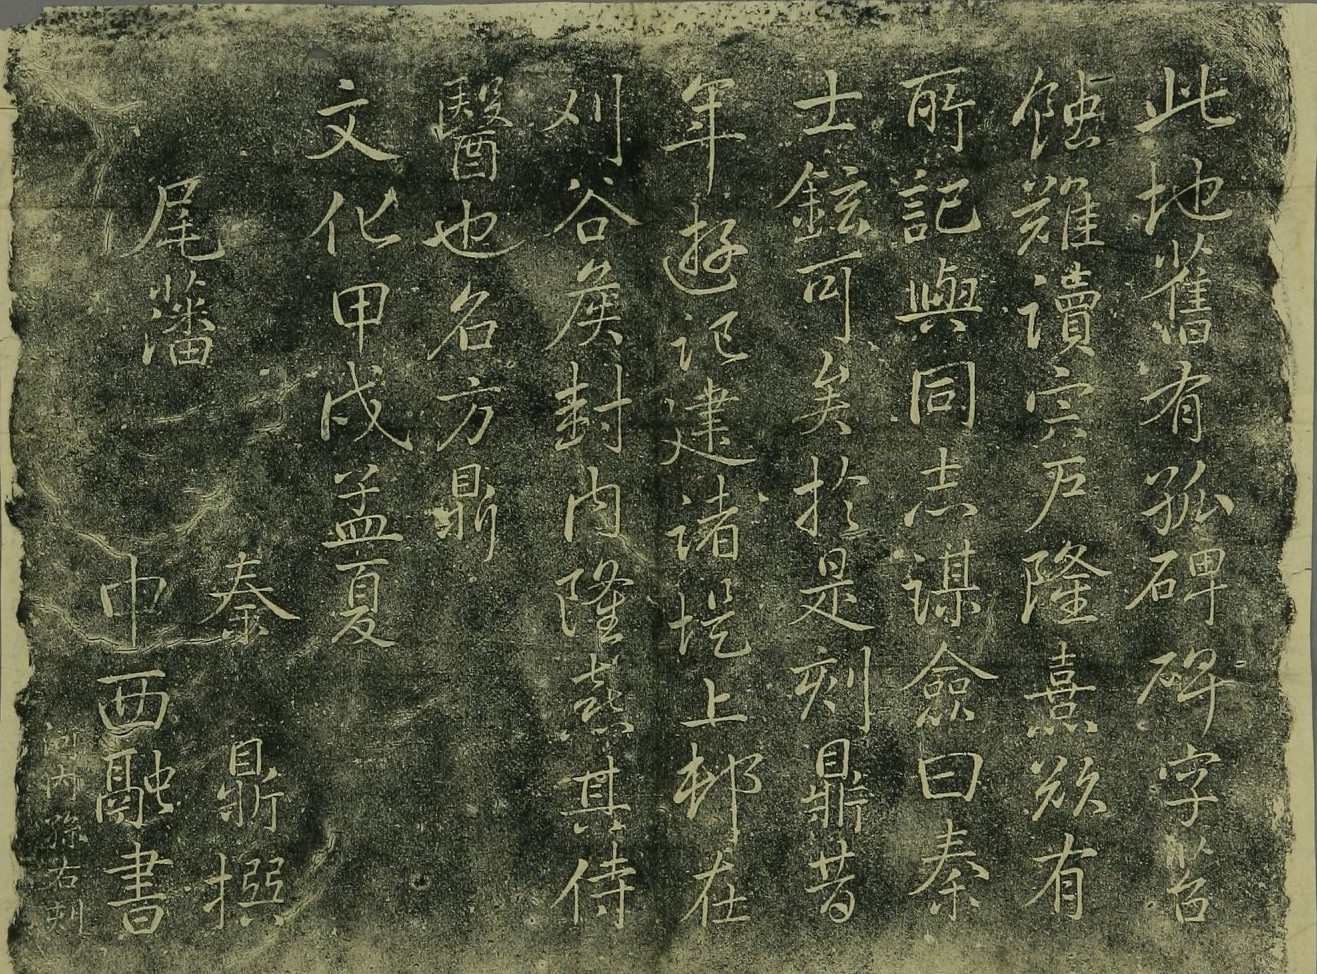 此地舊有孤碑碑字苔
蝕難讀宍戸隆熹欲有
所記與同志謀僉曰秦
士鉉可矣於是刻鼎昔
年遊記建諸堤上邨在
刈谷矦封内隆熹其侍
醫也名方鼎
文化甲戌孟夏
尾藩
秦鼎撰
中西融書
河内孫右刻